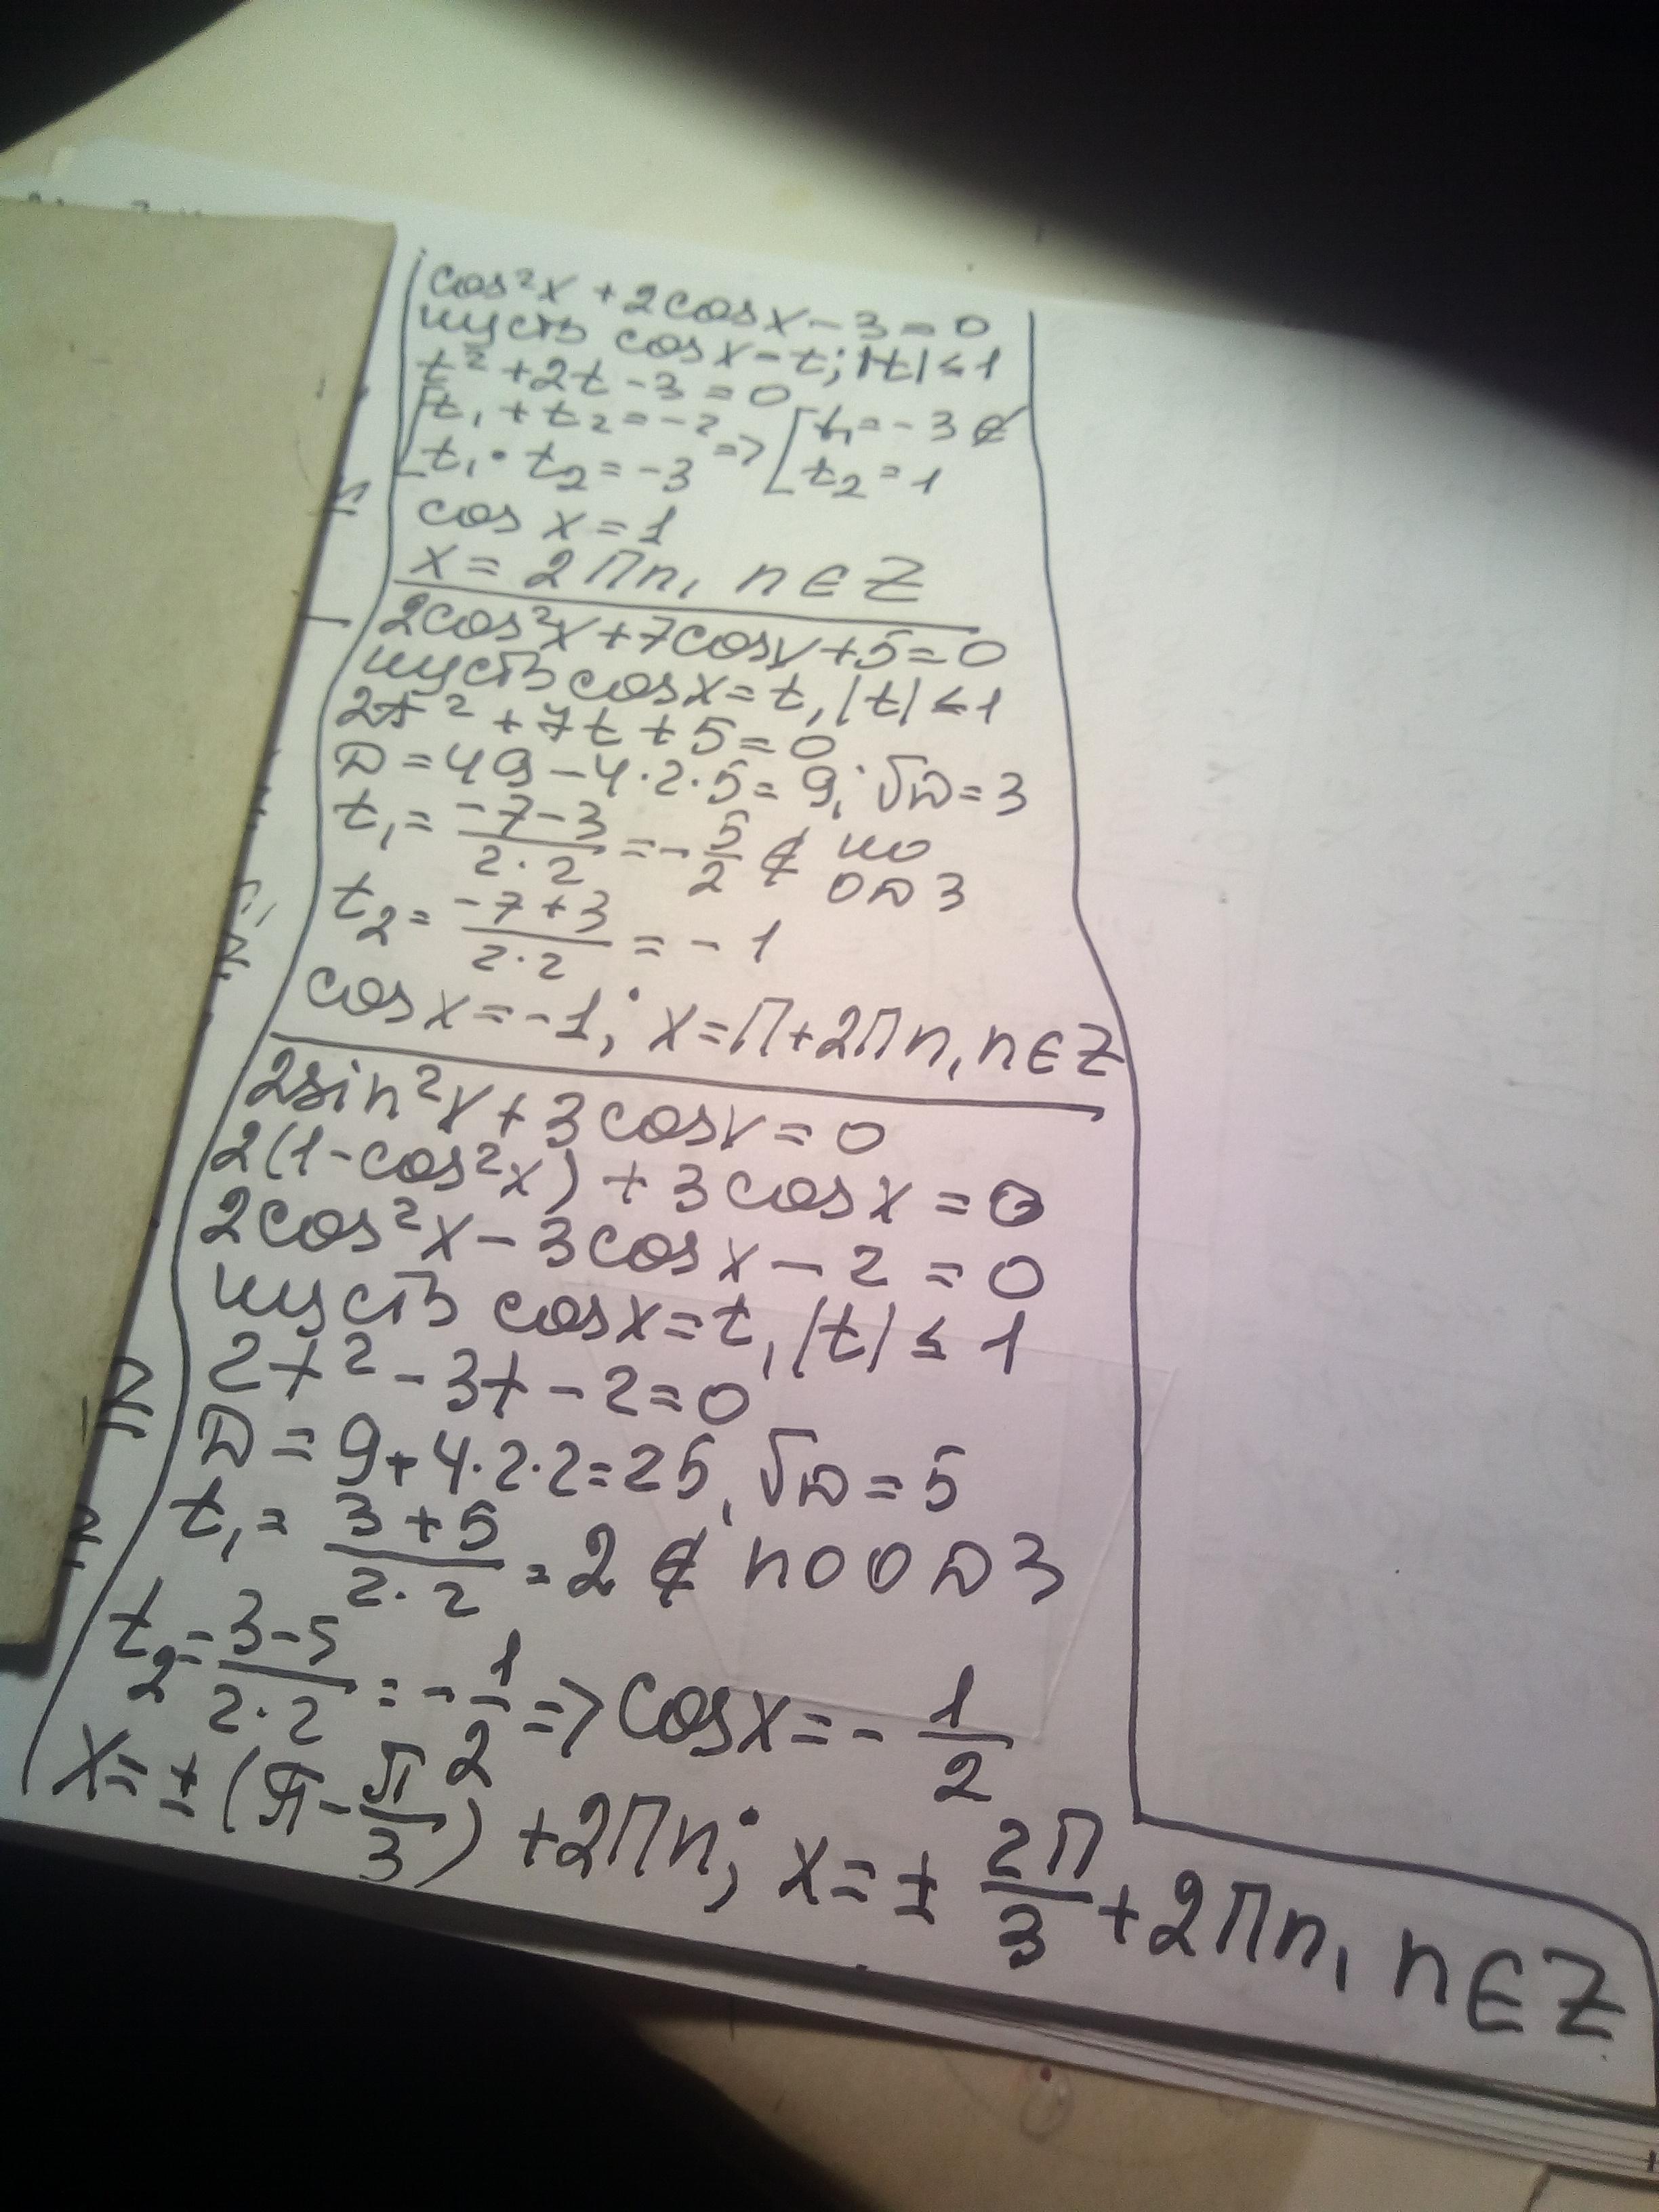 cos²x + 2cosx - 3 = 0
пусть cosx - t; |t| ≤ 1
t² + 2t - 3 = 0
[t₁ + t₂ = -2 => [t₁ = -3 ∉
[t₁ · t₂ = -3 [t₂ = 1
cos x = 1
x = 2πn, n∈Z
2cos²x + 7cosx + 5 = 0
пусть cosx = t, |t| ≤ 1
2t² + 7t + 5 = 0
D = 49 - 4·2·5 = 9; √D = 3
t₁ = (-7-3)/(2·2) = -5/2 ∉ по
ОДЗ
t₂ = (-7+3)/(2·2) = -1
cosx = -1; x = π + 2πn, n∈Z
2sin²x + 3cosx = 0
2(1 - cos²x) + 3cosx = 0
2cos²x - 3cosx - 2 = 0
пусть cosx = t, |t| ≤ 1
2t² - 3t - 2 = 0
D = 9 + 4·2·2 = 25, √D = 5
t₁ = (3+5)/(2·2) = 2 ∉ по ОДЗ
t₂ = (3-5)/(2·2) = -1/2 => cosx = -1/2
x = ±(π - π/3) + 2πn; x = ± 2π/3 + 2πn, n∈Z